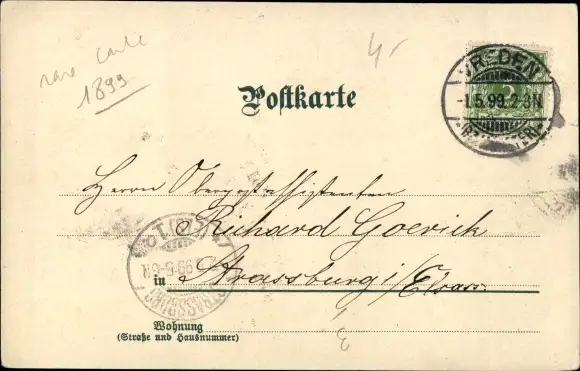 rare carte
1899
4,-
VREDEN
-1.5.99.2-3N.
Postkarte
Herrn Oberpostassistenten
Richard Goerich
in Strassburg i/Elsass.
STRASSBURG
Wohnung
(Straße und Hausnummer)